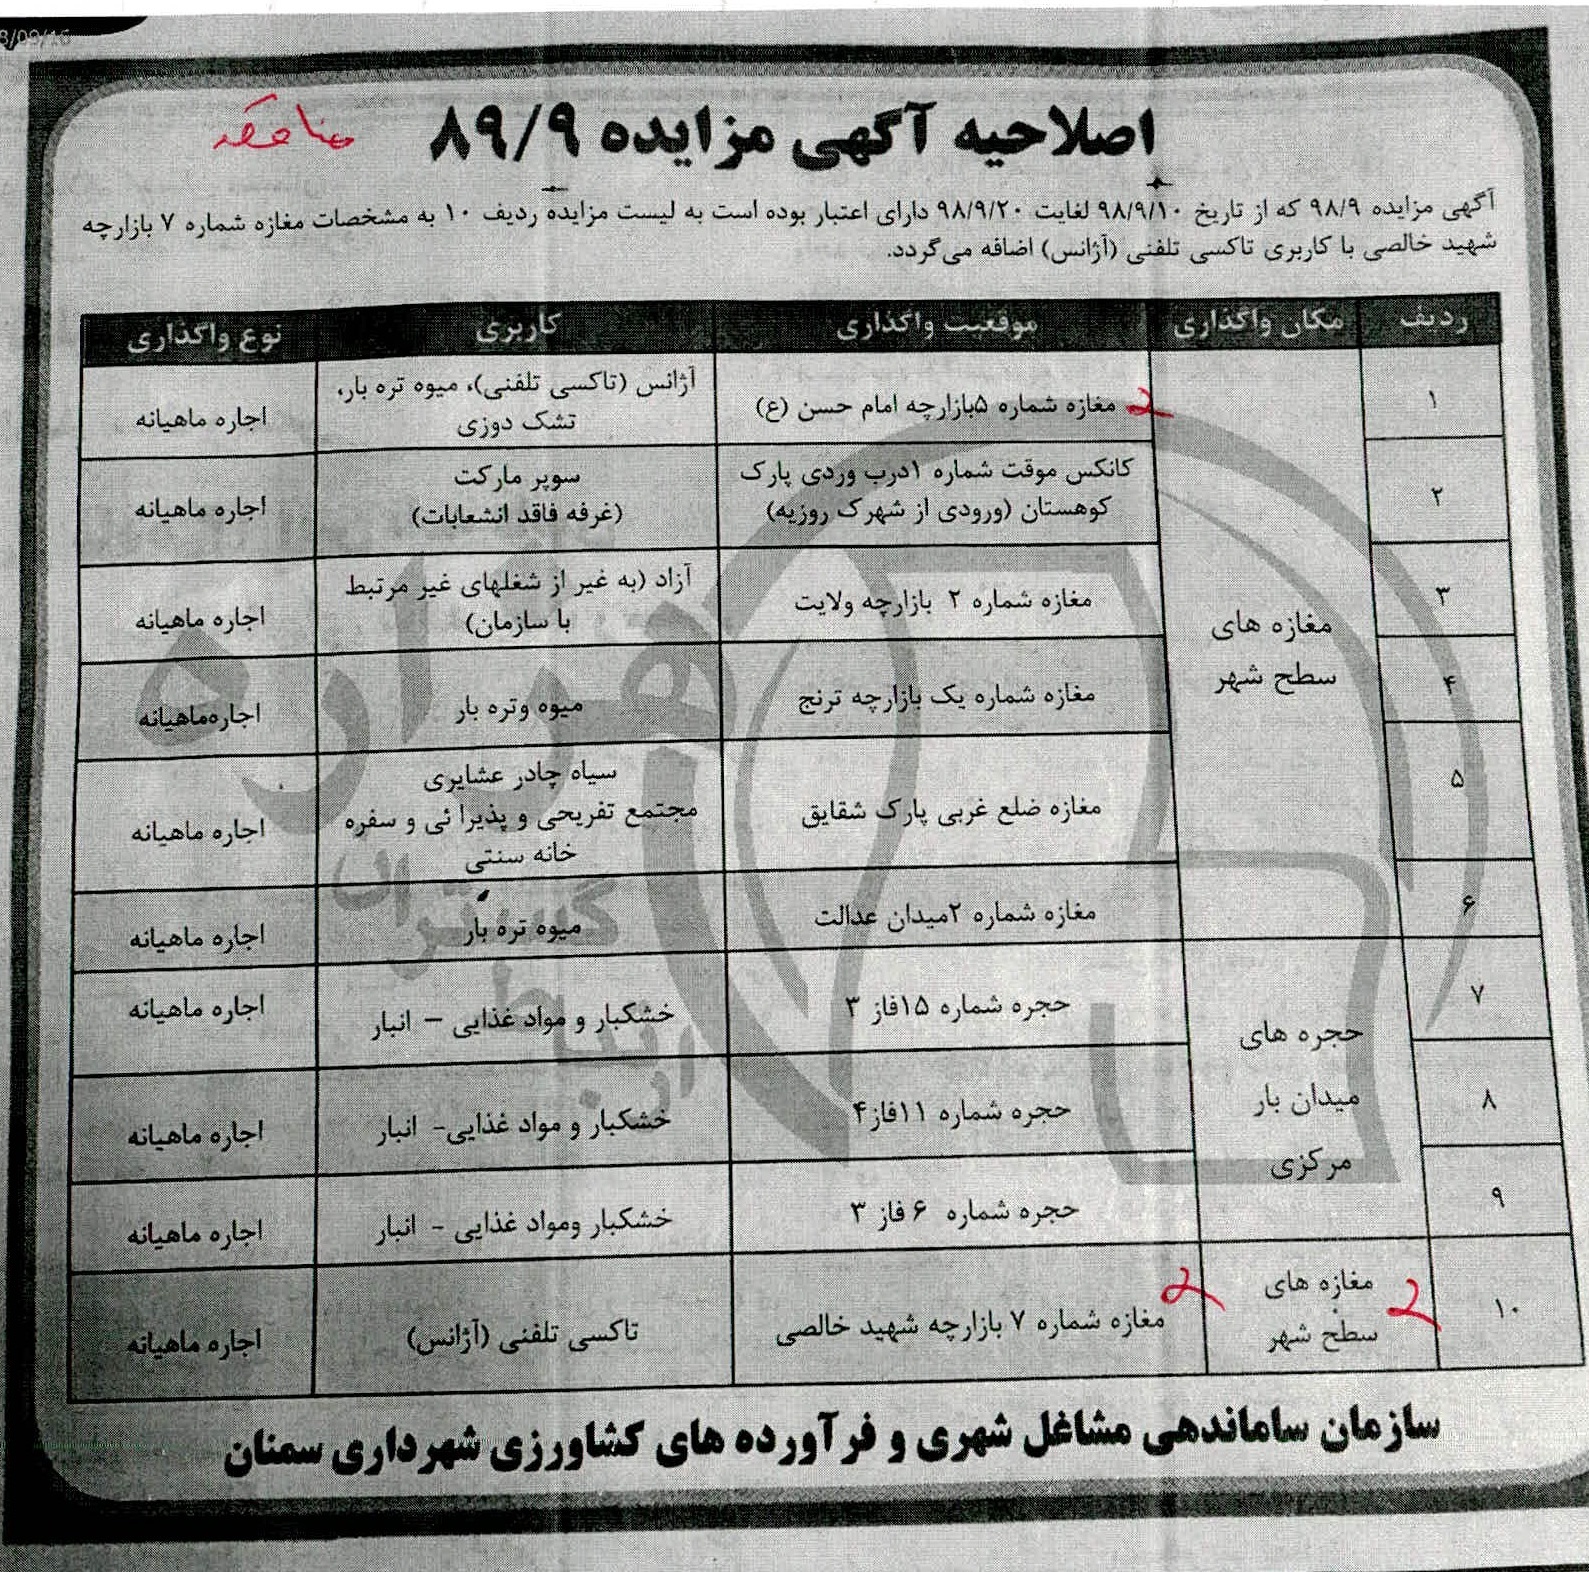 اصلاحیه آگهی مزایده ۸۹/۹
آگهی مزایده ۹۸/۹ که از تاریخ ۹۸/۹/۱۰ لغایت ۹۸/۹/۲۰ دارای اعتبار بوده است به لیست مزایده ردیف ۱۰ به مشخصات مغازه شماره ۷ بازارچه
شهید خالصی با کاربری تاکسی تلفنی (آژانس) اضافه می‌گردد.
ردیف مکان واگذاری موقعیت واگذاری کاربری نوع واگذاری
۱ مغازه شماره ۵بازارچه امام حسن (ع) آژانس (تاکسی تلفنی)، میوه تره بار، اجاره ماهیانه
تشک دوزی
۲ کانکس موقت شماره ۱درب وردی پارک سوپر مارکت اجاره ماهیانه
کوهستان (ورودی از شهرک روزیه) (غرفه فاقد انشعابات)
۳ مغازه شماره ۲ بازارچه ولایت آزاد (به غیر از شغلهای غیر مرتبط اجاره ماهیانه
با سازمان)
مغازه های
سطح شهر
۴ مغازه شماره یک بازارچه ترنج میوه وتره بار اجاره‌ماهیانه
۵ مغازه ضلع غربی پارک شقایق سیاه چادر عشایری اجاره ماهیانه
مجتمع تفریحی و پذیرا ئی و سفره
خانه سنتی
۶ مغازه شماره ۲میدان عدالت میوه تره بار اجاره ماهیانه
۷ حجره شماره ۱۵فاز ۳ خشکبار و مواد غذایی – انبار اجاره ماهیانه
حجره های
میدان بار
مرکزی
۸ حجره شماره ۱۱فاز۴ خشکبار و مواد غذایی- انبار اجاره ماهیانه
۹ حجره شماره ۶ فاز ۳ خشکبار ومواد غذایی - انبار اجاره ماهیانه
۱۰ مغازه های مغازه شماره ۷ بازارچه شهید خالصی تاکسی تلفنی (آژانس) اجاره ماهیانه
سطح شهر
سازمان ساماندهی مشاغل شهری و فرآورده های کشاورزی شهرداری سمنان